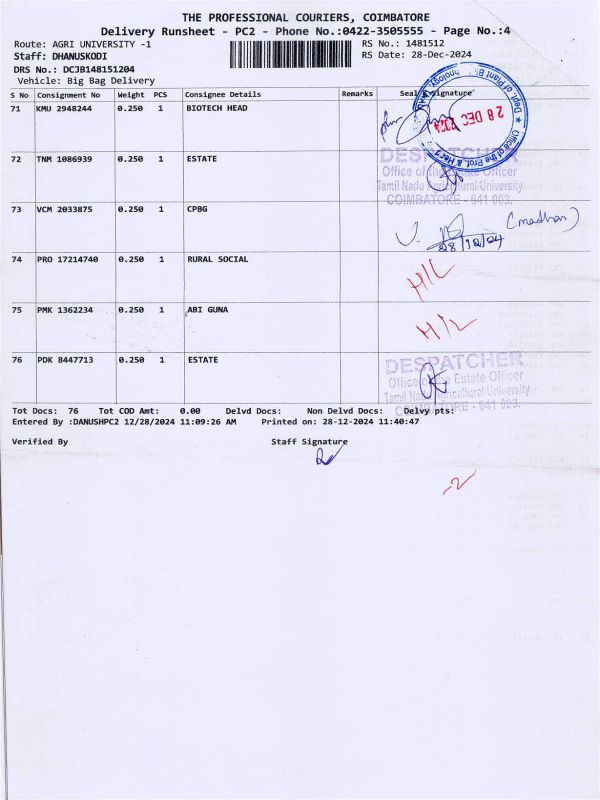 THE PROFESSIONAL COURIERS, COIMBATORE
Delivery Runsheet - PC2 - Phone No.:0422-3505555 - Page No.:4
Route: AGRI UNIVERSITY -1
RS No.: 1481512
Staff: DHANUSKODI
RS Date: 28-Dec-2024
DRS No.: DCJB148151204
Vehicle: Big Bag Delivery
S No Consignment No Weight PCS Consignee Details Remarks Seal & Signature
71 KMU 2948244 0.250 1 BIOTECH HEAD
28 DEC 2024
72 TNM 1086939 0.250 1 ESTATE
DESPATCHER
Office of the Estate Officer
Tamil Nadu Agricultural University
COIMBATORE - 641 003.
73 VCM 2033875 0.250 1 CPBG
(madhan)
28/12/24
74 PRO 17214740 0.250 1 RURAL SOCIAL
H/L
75 PMK 1362234 0.250 1 ABI GUNA
H/L
76 PDK 8447713 0.250 1 ESTATE
DESPATCHER
Office of the Estate Officer
Tamil Nadu Agricultural University
COIMBATORE - 641 003.
Tot Docs: 76 Tot COD Amt: 0.00 Delvd Docs: Non Delvd Docs: Delvy pts:
Entered By :DANUSHPC2 12/28/2024 11:09:26 AM Printed on: 28-12-2024 11:40:47
Verified By Staff Signature
-2